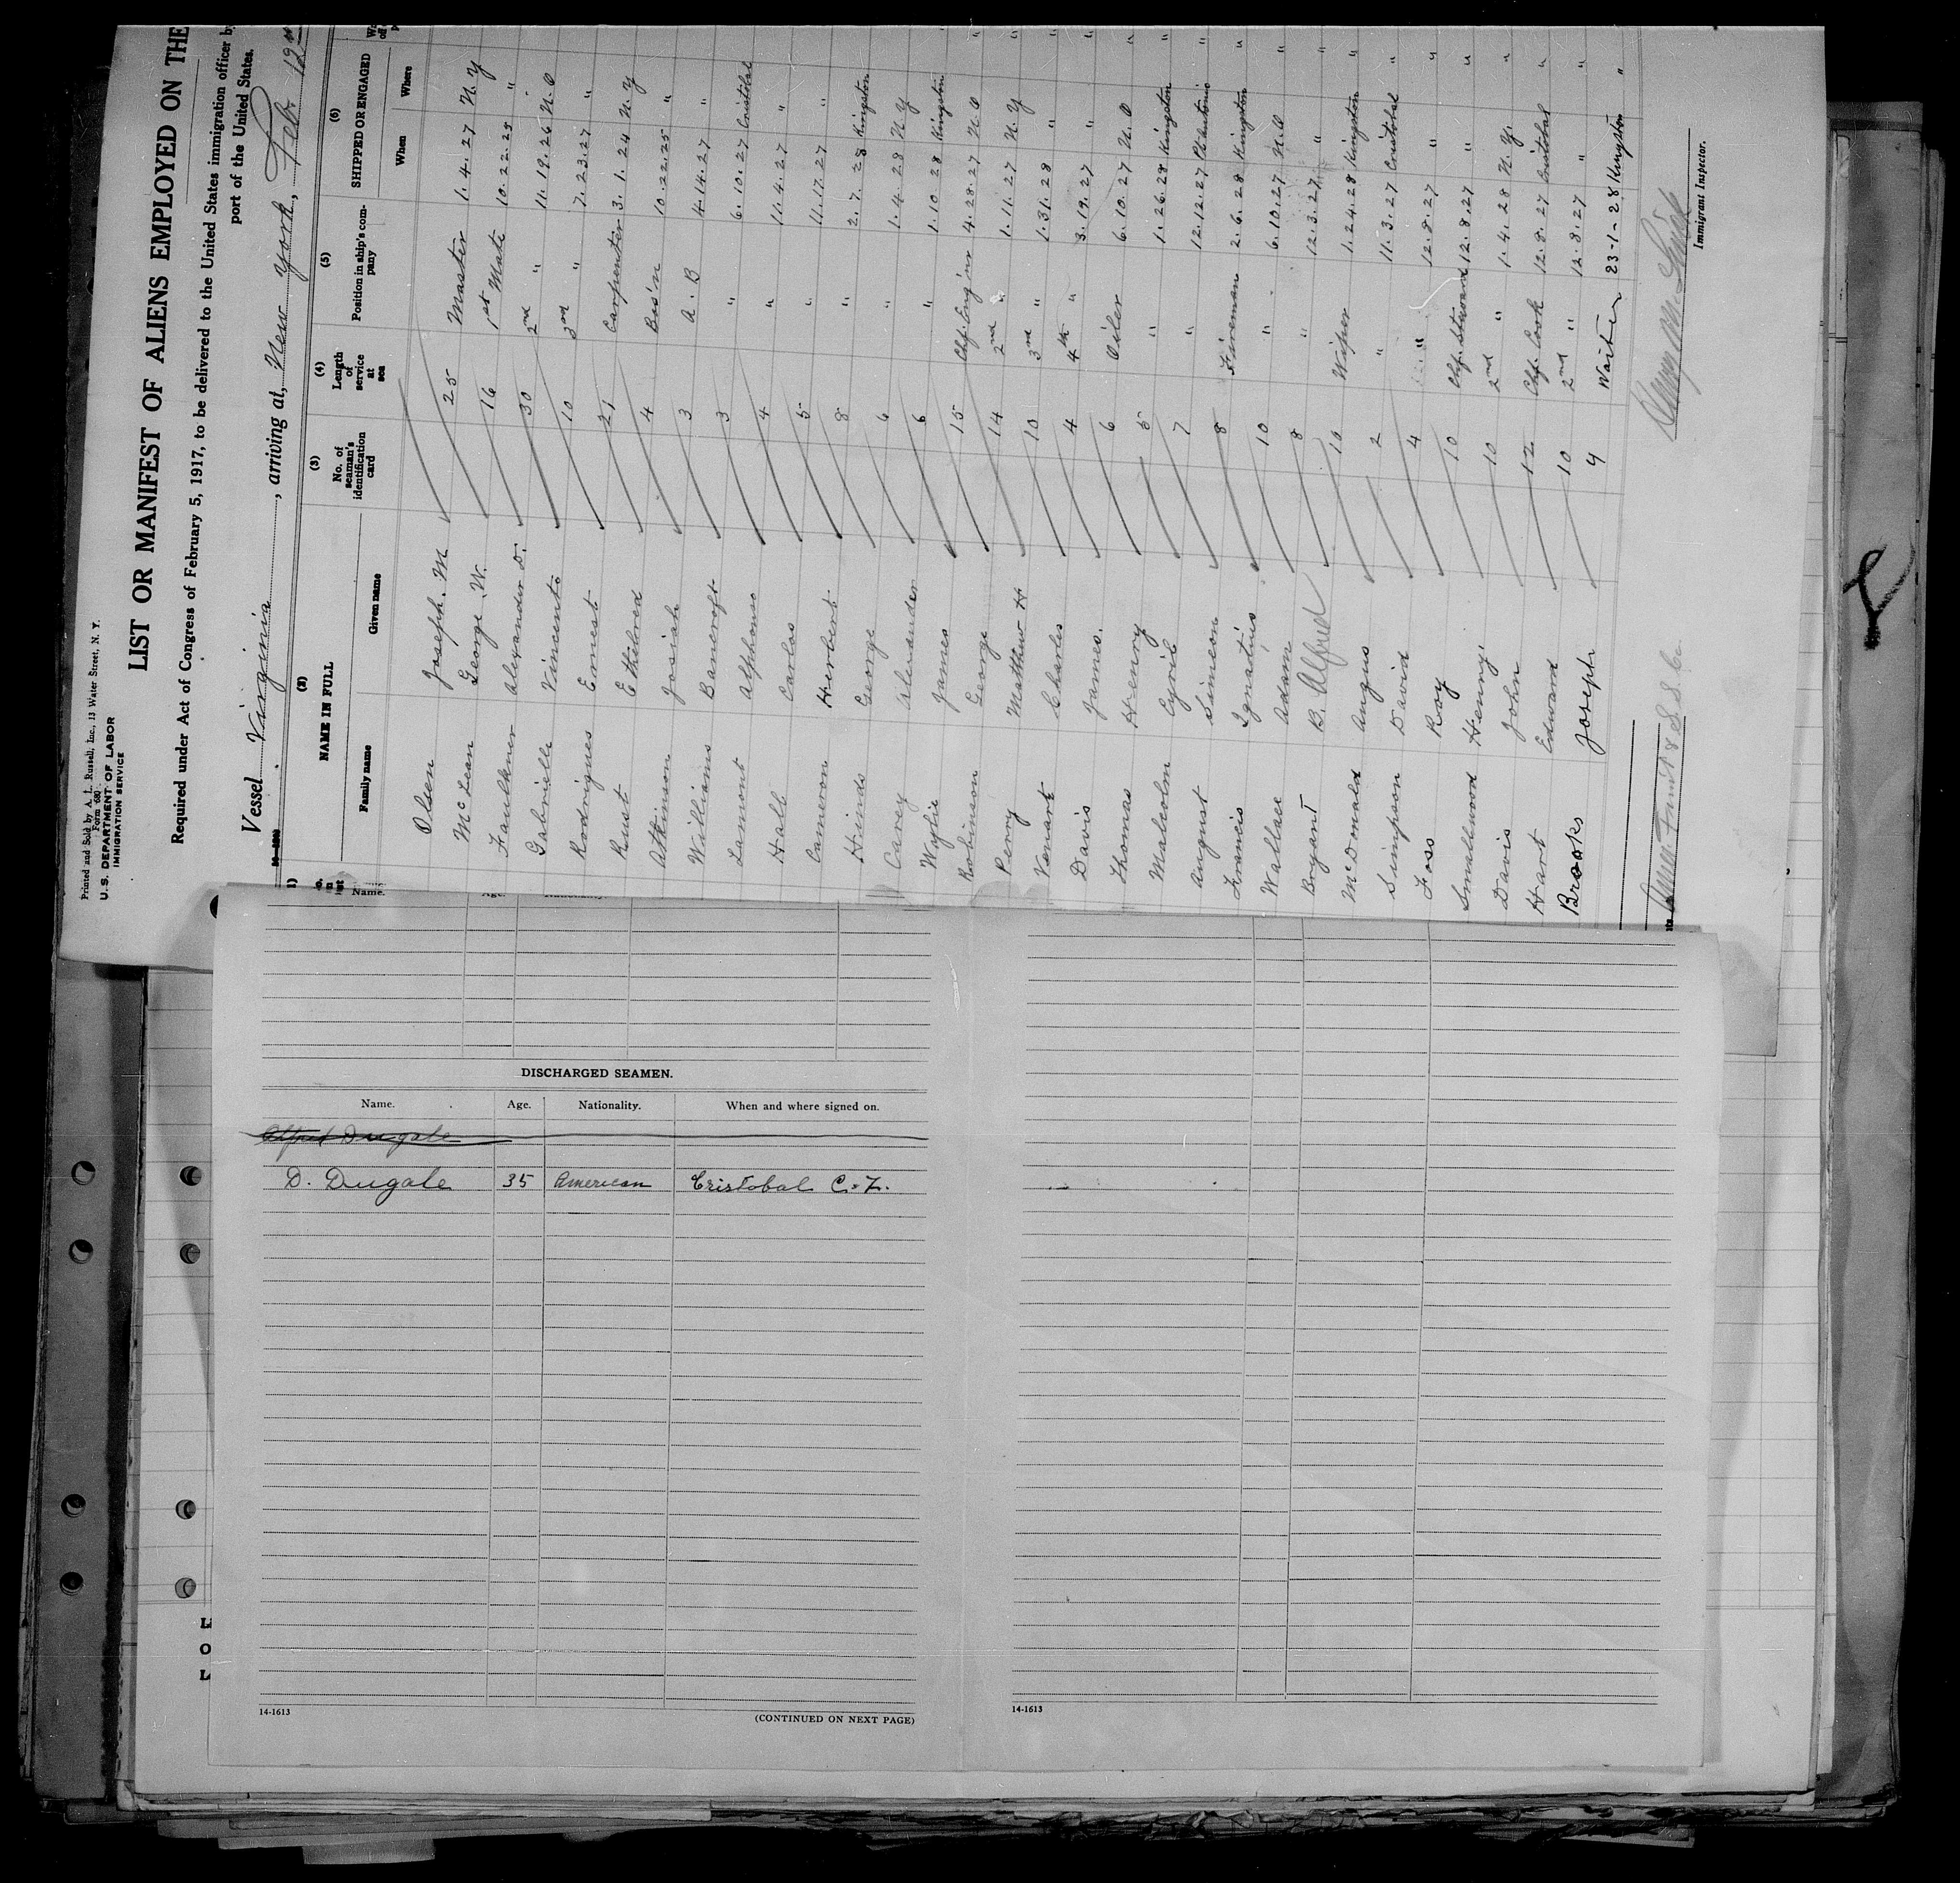 Printed and Sold by A. L. Russell, Inc., 13 Water Street, N. Y.
Form 680
U. S. DEPARTMENT OF LABOR
IMMIGRATION SERVICE
LIST OR MANIFEST OF ALIENS EMPLOYED ON THE
Required under Act of Congress of February 5, 1917, to be delivered to the United States immigration officer by
port of the United States.
Vessel Virginia, arriving at, New York, Feb. 12
(2) (3) (4) (5) (6)
NAME IN FULL No. of seaman's identification card Length of service at sea Position in ship's company SHIPPED OR ENGAGED
Family name Given name When Where
Olsen Joseph. M 25 Master 1. 4. 27 N. Y
McLean George W. 16 1st Mate 10. 22. 25 "
Faulkner Alexander D. 30 2nd " 11. 19. 26 N. O
Gabrielle Vincent 10 3rd " 7. 23. 27 "
Rodriques Ernest 21 Carpenter 3. 1. 24 N. Y
Rust Ethelred 4 Bos'n 10. 22. 25 "
Atkinson Josiah 3 A. B 4. 14. 27 "
Williams Bancroft 3 " 6. 10. 27 Cristobal
Lamont Alphonso 4 " 11. 4. 27 "
Hall Carlos 5 " 11. 17. 27 "
Cameron Herbert 8 " 2. 7. 28 Kingston
Hinds George 6 " 1. 4. 28 N. Y
Carey Alexander 6 " 1. 10. 28 Kingston
Wylie James 15 Chf. Eng'nr 4. 28. 27 N. O
Robinson George 14 2nd " 1. 11. 27 N. Y
Perry Matthew H 10 3rd " 1. 31. 28 "
Venart Charles 4 4th " 3. 19. 27 "
Davis James. 6 Oiler 6. 10. 27 N. O
Thomas Henry 5 " 1. 26. 28 Kingston
Malcolm Cyril 7 " 12. 12. 27
August Simeon 8 Fireman 2. 6. 28 Kingston
Francis Ignatius 10 " 6. 10. 27 N. O
Wallace Adam 8 " 12. 3. 27 "
Bryant B. Alfred 10 Wiper 1. 24. 28 Kingston
McDonald Angus 2 " 11. 3. 27 Cristobal
Simpson David 4 " 12. 8. 27 "
Foss Roy 10 Chf. Steward 12. 8. 27 "
Smallwood Henry. 10 2nd " 1. 4. 28 N. Y.
Davis John 12 Chf. Cook 12. 8. 27 Cristobal
Hart Edward 10 2nd " 12. 8. 27 "
Brooks Joseph 4 Waiter 23-1-28 Kingston "
Immigrant Inspector.
S. S. Co.
Name. Age. Nationality.
DISCHARGED SEAMEN.
Name. Age. Nationality. When and where signed on.
Alfred Dugale
D. Dugale 35 American Cristobal C. Z.
14-1613
(CONTINUED ON NEXT PAGE)
14-1613